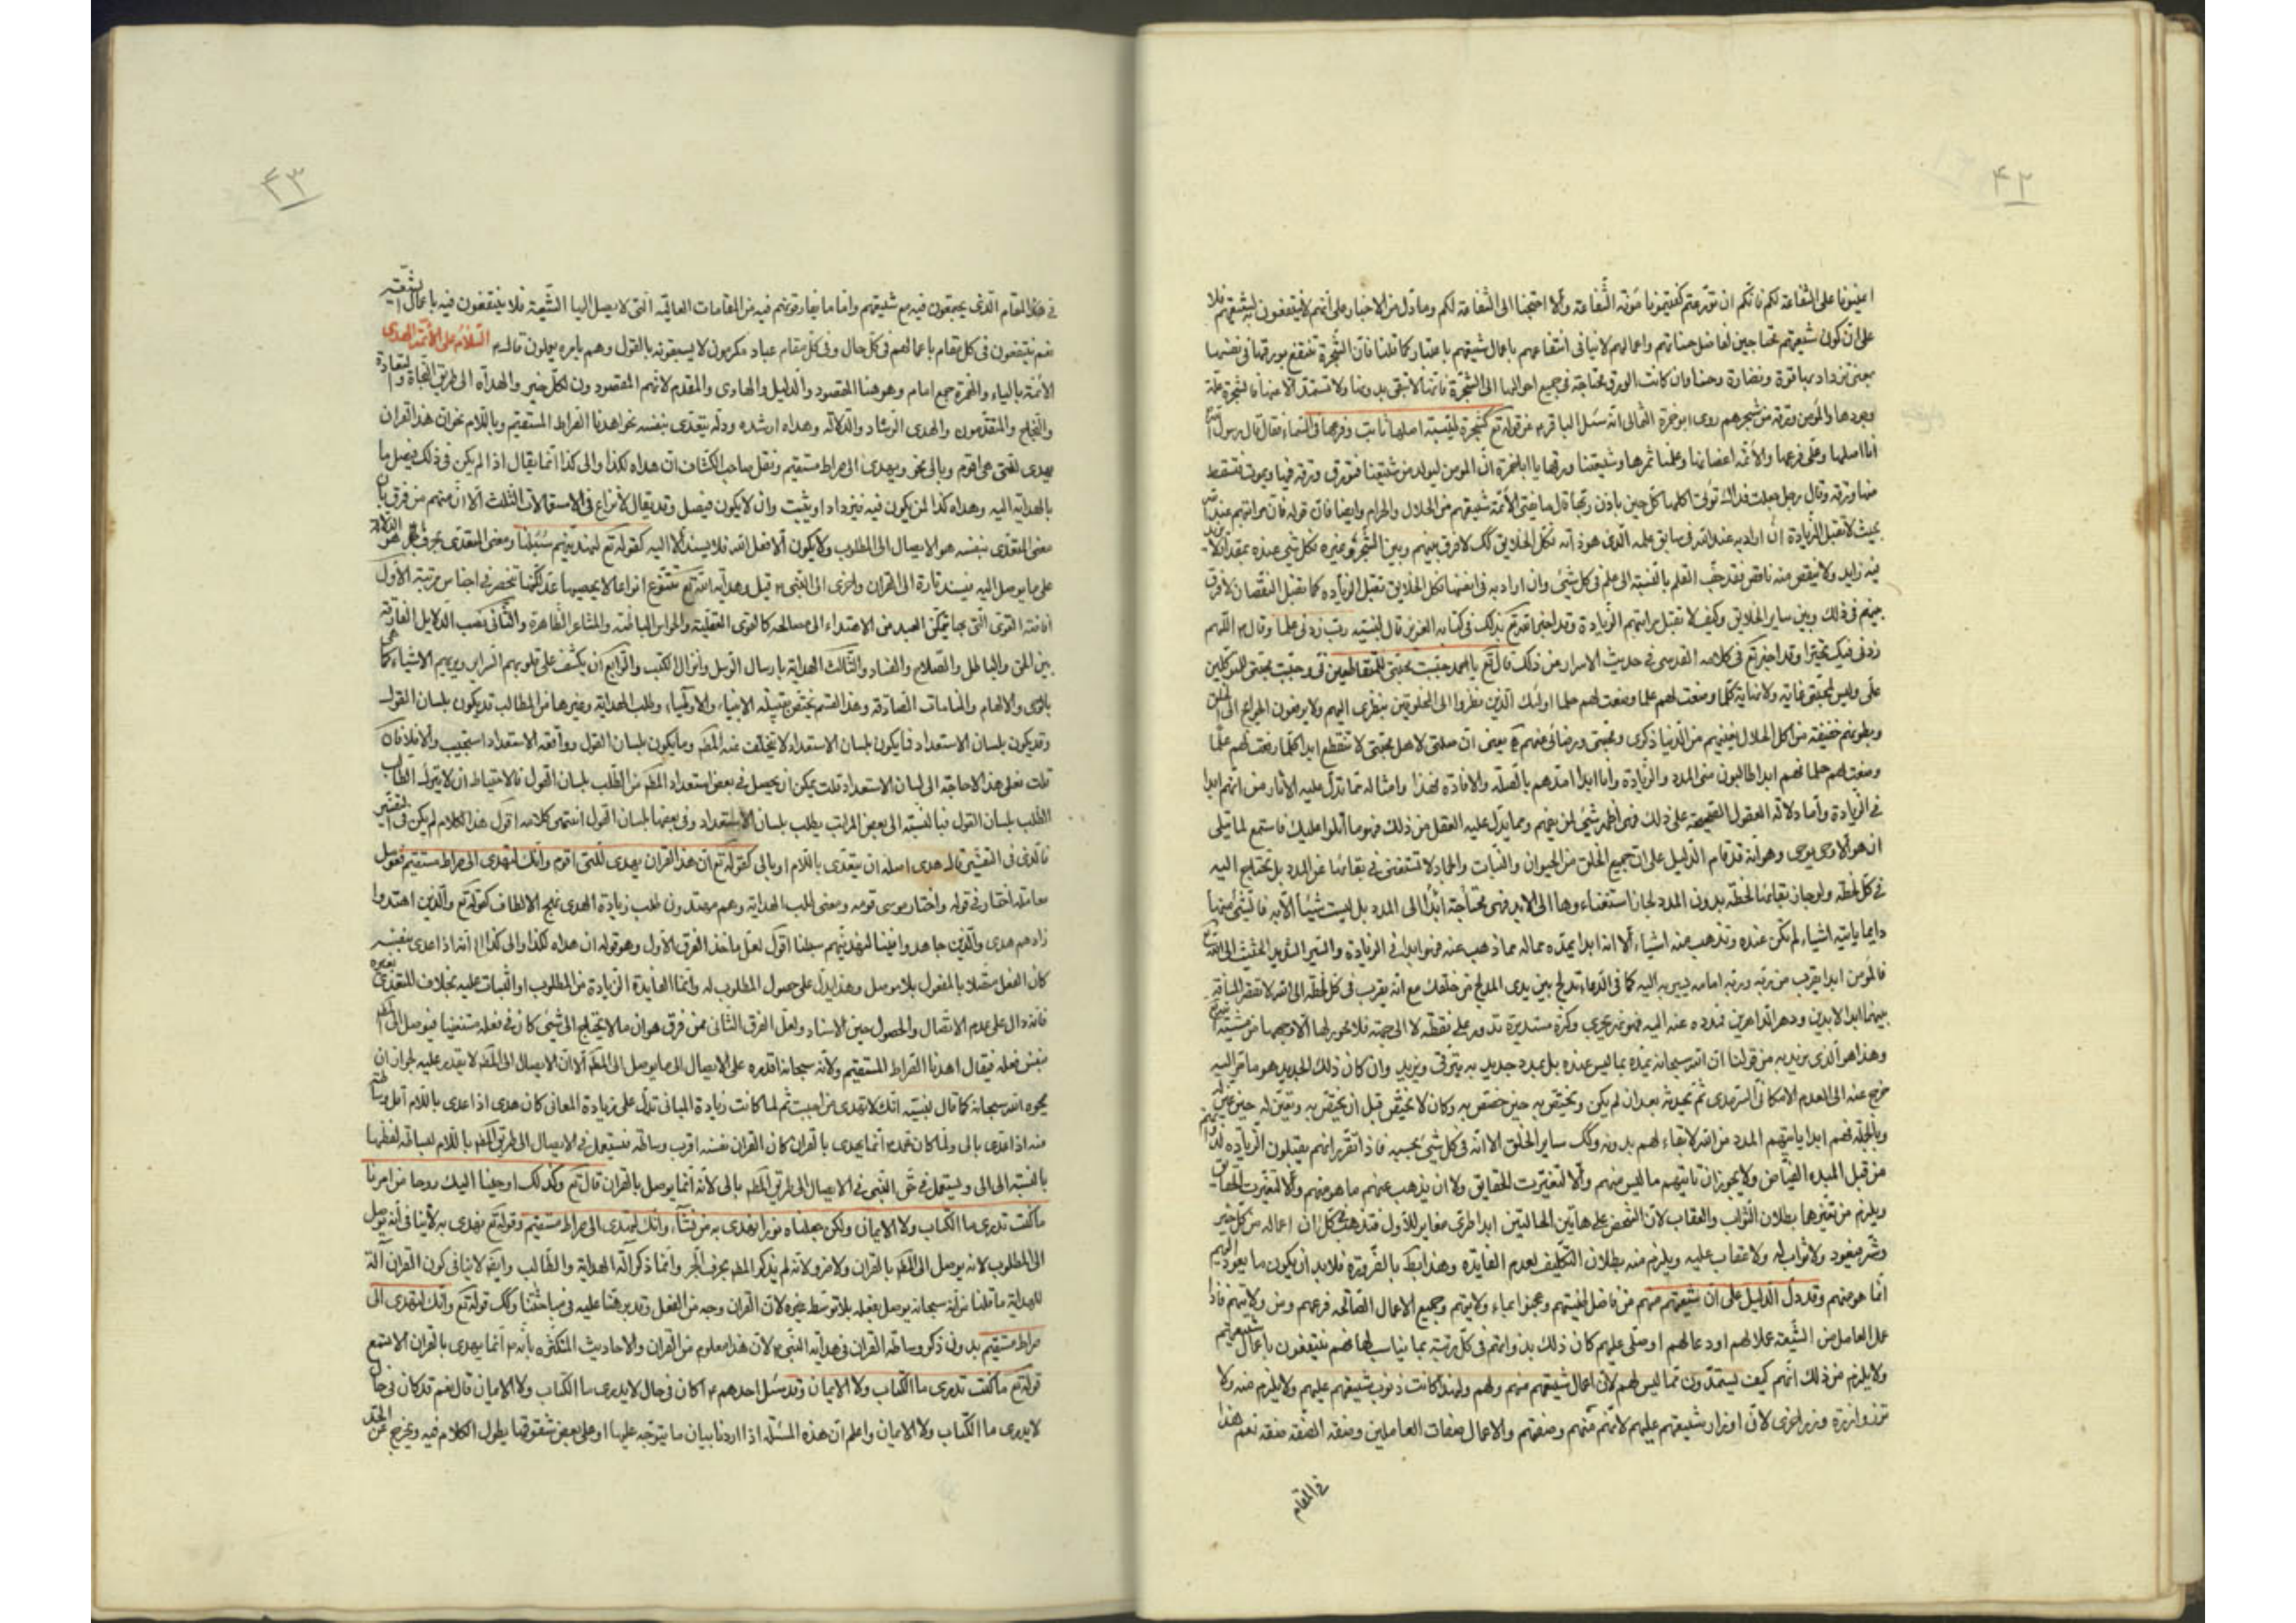 ۴۲
اعینونا على الشفاعة لكم فانكم ان تورعتم كفيتمونا مؤنة الشفاعة والا احتجنا الى الشفاعة لكم وما دل من الاخبار على انهم لا ينتفعون بشيعتهم فلا
على ان كون شيعتهم محتاجين لفاضل حسناتهم واعمالهم لا ينافى انتفاعهم باعمال شيعتهم باعتبار كما قلنا فان الشجرة تنتفع بورقها فى نفسها
بمعنى تزداد بها قوة ونضارة وحسنا وان كانت الورق محتاجة فى جميع احوالها الى الشجرة فانها لا تبقى بدونها ولا تستمد الا منها فالشجرة علة
وجودها والمؤمن ورقة من شجرهم روى ابو حمزة الثمالى انه سئل الباقر ع من قوله تع كشجرة طيبة اصلها ثابت وفرعها فى السماء فقال قال رسول الله
انا اصلها وعلى فرعها والائمة اغصانها وعلمنا ثمرها وشيعتنا ورقها يا ابا حمزة ان المومن ليولد من شيعتنا فتورق ورقة فيها ويموت فتسقط
منها ورقة وقال رجل جعلت فداك تؤتى اكلها كل حين باذن ربها قال ما يفتى الائمة شيعتهم من الحلال والحرام وايضا فان قوله فان مراتبهم عند الله
بحيث لا تقبل الزيادة ان اراد به عند الله فى سابق علمه الذى هو ذاته فكل الخلايق كك لا فرق بينهم وبين الشجر وغيره فكل شئ عنده بمقدار لا يزيد
فيه زايد ولا ينقص منه ناقص فقد جف القلم بالنسبة الى علمه فى كل شئ وان اراد به فى انفسها فكل الخلايق تقبل الزيادة كما تقبل النقصان لا فرق
بينهم فى ذلك وبين ساير الخلايق وكيف لا تقبل مراتبهم الزيادة وقد اخبر الله تع بذلك فى كتابه العزيز قال لنبيه رب زدنى علما وقال ع اللهم
زدنى فيك تحيرا وقد اخبر تع فى كلامه القدسى فى حديث الاسرار من ذلك قال تع يا احمد وجبت محبتى للمتقاطعين فى ووجبت محبتى للمتوكلين
على وليس لمحبتى غاية ولا نهاية كلما رفعت لهم علما وضعت لهم حلما اولئك الذين نظروا الى المخلوقين بنظرى اليهم ولا يرفعون الحوائج الى الخلق
وبطونهم خفيفة من اكل الحلال نعيمهم من الدنيا ذكرى ومحبتى ورضائى عنهم ه يعنى ان صلتى لاهل محبتى لا تنقطع ابدا كلما رفعت لهم علما
وضعت لهم حلما فهم ابدا طالبون منى المدد والزيادة وانا ابدا امدهم بالصلة والافادة فهذا وامثاله مما تدل عليه الاثار من انهم ابدا
فى الزيادة واما دلالة العقول الصحيحة على ذلك فهى اظهر شئ لمن يفهم ومما يدل عليه العقل من ذلك فهو ما اتلوا عليك فاستمع لما يتلى
ان هو الا وحى يوحى وهو انه قد قام الدليل على ان جميع الخلق من الحيوان والنبات والجماد لا تستغنى فى بقائها عن المدد بل تحتاج اليه
فى كل لحظة ولو جاز بقائها لحظة بدون المدد لجاز استغناءها الى الابد فهى محتاجة ابدا الى المدد بل ليست شيئا الا به فالشئ منها
دايما ياتيه اشياء لم تكن عنده وتذهب منه اشياء الا انه ابدا يمده بماله مما ذهب عنه فهو ابدا فى الزيادة والسير الشديد الحثيث الى الله
فالمؤمن ابدا يقرب من ربه وربه امامه يسير به اليه كما فى الدعاء تدلج بين يدى المدلج من خلقك مع انه يقرب فى كل لحظة الى الله لا تقصر المسافة
بينهما ابد الابدين ودهر الداهرين فمدده عنه اليه فهو نهر يجرى وكرة مستديرة تدور على نقطة لا الى جهة فلا محور لها الا وجهها من مشية
وهذا هو الذى نريد به من قولنا ان الله سبحانه يمده بما ليس عنده بل بمدد جديد به يترقى ويزيد وان كان ذلك الجديد هو ما مر اليه
خرج عنه الى العدم الامكانى السرمدى ثم يحدثه بعد ان لم يكن ويختص به حين خصص به وكان لا يختص قبل ان يختص به ويتعين له حين عين له
وبالجملة فهم ابدا ياتيهم المدد من الله لا بقاء لهم بدونه وكك ساير الخلق الا انه فى كل شئ بحسبه فاذا تقرر انهم يقبلون الزيادة
من قبل المبدء الفياض ولا يجوز ان تاتيهم ما ليس منهم والا لتغيرت الحقايق ولا ان يذهب عنهم ما هو منهم والا لتغيرت الحقايق
ويلزم من تغيرها بطلان الثواب والعقاب لان الشخص على هاتين الحالتين ابدا طرى مغاير للاول فتذهب كل ان اعماله من كل خير
وشر فيعود ولا ثواب له ولا عقاب عليه ويلزم منه بطلان التكليف لعدم الفايدة وهذا بط بالضرورة فلا بد ان يكون ما يعود اليهم
انما هو منهم وقد دل الدليل على ان شيعتهم منهم من فاضل طينتهم وعجنوا بماء ولايتهم وجميع الاعمال الصالحة فرعهم ومن ولايتهم فاذا
عمل العامل من الشيعة عملا لهم او دعا لهم او صلى عليهم كان ذلك بذواتهم فى كل رتبة بما يناسب لها فهم ينتفعون باعمال شيعتهم
ولا يلزم من ذلك انهم كيف يستمدون مما ليس لهم لان اعمال شيعتهم منهم ولهم ولهذا كانت ذنوب شيعتهم عليهم ولا يلزم منه ولا
تزر وازرة وزر اخرى لان اوزار شيعتهم عليهم لانهم منهم وصفتهم والاعمال صفات العاملين وصفة الصفة صفة نعم هذا
فى المقام
۴۳
فى هذا المقام الذى يجتمعون فيه مع شيعتهم واما ما يفارقونهم فيه من المقامات العالية التى لا يصل اليها الشيعة فلا ينتفعون فيه باعمال شيعتهم
نعم ينتفعون فى كل مقام باعمالهم فى كل حال وفى كل مقام عباد مكرمون لا يسبقونه بالقول وهم بامره يعملون قال ع السلام على ائمة الهدى
الائمة بالياء والهمزة جمع امام وهو هنا المقصود والدليل والهادى والمقدم لانهم المقصودون لكل خير والهداة الى طريق النجاة والسعادة
والنجاح والمتقدمون والهدى الرشاد والدلالة وهداه ارشده ودله يتعدى بنفسه نحو اهدنا الصراط المستقيم وباللام نحو ان هذا القران
يهدى للتى هى اقوم وبالى نحو ويهدى الى صراط مستقيم ونقل صاحب الكشاف ان هداه لكذا والى كذا انما يقال اذا لم يكن فى ذلك فيصل بها
بالهداية اليه وهداه كذا لمن يكون فيه فيزداد او يثبت وان لا يكون فيصل وقد يقال لا نزاع فى الاستعمالات الثلث الا ان منهم من فرق بان
معنى المتعدى بنفسه هو الايصال الى المطلوب ولا يكون الا فعل الله فلا يسند الا اليه كقوله تع لنهدينهم سبلنا ومعنى المتعدى بحرف الجر هو الدلالة
على ما يوصل اليه فيسند تارة الى القران واخرى الى النبى ص قيل وهداية الله تع تتنوع انواعا لا يحصيها عد لكنها تنحصر فى اجناس مترتبة الاول
افاضة القوى التى بها يتمكن العبد من الاهتداء الى مصالحه كالقوى العقلية والحواس الباطنة والمشاعر الظاهرة والثانى نصب الدلايل الفارقة
بين الحق والباطل والصلاح والفساد والثالث الهداية بارسال الرسل وانزال الكتب والرابع ان يكشف على قلوبهم السراير ويريهم الاشياء كما هى
بالوحى والالهام والمنامات الصادقة وهذا القسم يختص بنيله الانبياء والاولياء وطلب الهداية وغيرها من المطالب قد يكون بلسان القول
وقد يكون بلسان الاستعداد فما يكون بلسان الاستعداد لا يتخلف عنه المط وما يكون بلسان القول ووافقه الاستعداد استجيب والا فلا فان
قلت فعلى هذا لا حاجة الى لسان الاستعداد قلت يمكن ان يحصل فى بعض استعداد المط من الطلب بلسان القول فالاحتياط ان لا يترك الطالب
الطلب بلسان القول فبالنسبة الى بعض المراتب يطلب بلسان الاستعداد وفى بعضها بلسان القول انتهى كلامه اقول هذا الكلام لم يكن فى التفسير
فالذى فى التفسير قال هدى اصله ان يتعدى باللام او بالى كقوله تع ان هذا القران يهدى للتى اقوم وانك لتهدى الى صراط مستقيم فعومل
معاملة اختار فى قوله واختار موسى قومه ومعنى طلب الهداية وهم مهتدون طلب زيادة الهدى بمنح الالطاف كقوله تع والذين اهتدوا
زادهم هدى والذين جاهدوا فينا لنهدينهم سبلنا اقول لعل ماخذ الفرق الاول وهو قوله ان هداه لكذا والى كذا انه اذا عدى بنفسه
كان الفعل متصلا بالمفعول بلا موصل وهذا يدل على حصول المطلوب له وانما الفايدة الزيادة من المطلوب او الثبات عليه بخلاف المتعدى بغيره
فانه دال على عدم الاتصال والحصول حين الاسناد ولعل الفرق الثانى ممن فرق هو ان ما لا يحتاج الى شئ كان فى فعله مستغنيا فيوصل الى المط
بنفس فعله فيقال اهدنا الصراط المستقيم ولانه سبحانه اقدره على الايصال الى ما يوصل الى المط الا ان الايصال الى المط لا يقدر عليه لجواز ان
يمحوه الله سبحانه كما قال لنبيه انك لا تهدى من احببت ثم لما كانت زيادة المبانى تدل على زيادة المعانى كان هدى اذا عدى باللام اقل وساطة
منه اذا عدى بالى ولما كان محمد ص انما يهدى بالقران كان القران نفسه اقرب وساطة فيستعمل فى الايصال الى طريق المط باللام لبساطة لفظها
بالنسبة الى الى ويستعمل فى حق النبى فى الايصال الى طريق المط بالى لانه انما يوصل بالقران قال تع وكذلك اوحينا اليك روحا من امرنا
ما كنت تدرى ما الكتاب ولا الايمان ولكن جعلناه نورا نهدى به من نشاء وانك لتهدى الى صراط مستقيم وقوله تع نهدى به لا ينافى انه يوصل
الى المطلوب لانه يوصل الى المط بالقران ولا غيره لانه لم يذكر المط بحرف الجر وانما ذكر الة الهداية والطالب وايض لا ينافى كون القران الة
للهداية ما قلنا من انه سبحانه يوصل بفعله بلا توسط غيره لان القران وجه من الفعل وقد برهنا عليه فى مباحثنا وكك قوله تع وانك لتهدى الى
صراط مستقيم بدون ذكر وساطة القران فى هداية النبى ص لان هذا معلوم من القران والاحاديث المتكثرة بانه ص انما يهدى بالقران الا تسمع
قوله تع ما كنت تدرى ما الكتاب ولا الايمان وقد سئل احدهم ع اكان فى حال لا يدرى ما الكتاب ولا الايمان قال نعم قد كان فى حال
لا يدرى ما الكتاب ولا الايمان واعلم ان هذه المسئلة اذا اردنا بيان ما يتوجه عليها او على بعض شقوقها يطول الكلام فيه ويخرج عن الحد